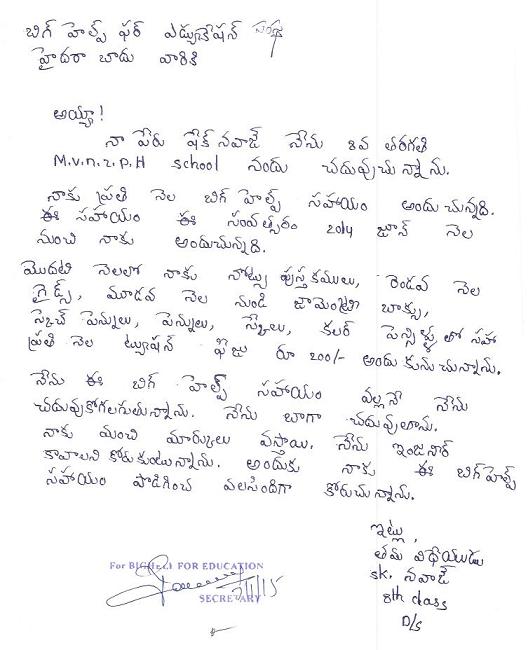 బిగ్ హెల్ప్ ఫర్ ఎడ్యుకేషన్ సంస్థ
హైదరా బాదు వారికి
అయ్యా!
నా పేరు షేక్ నవాజ్ నేను 8వ తరగతి
M.V.n.z.p.H school నందు చదువుచున్నాను.
నాకు ప్రతి నెల బిగ్ హెల్ప్ సహాయం అందుచున్నది.
ఈ సహాయం ఈ సంవత్సరం 2014 జూన్ నెల
నుంచి నాకు అందుచున్నది.
మొదటి నెలలో నాకు నోట్సు పుస్తకములు, రెండవ నెల
గైడ్స్, మూడవ నెల నుండి జామెంట్రి బాక్సు,
స్కెచ్ పెన్నులు, పెన్నులు, స్కేలు, కలర్ పెన్సిళ్ళు లో సహా
ప్రతి నెల ట్యూషన్ ఫీజు రూ 200/- అందు కును చున్నాను.
నేను ఈ బిగ్ హెల్ప్ సహాయం వల్లనే నేను
చదువుకోగలగుతున్నాను. నేను బాగా చదువుతాను.
నాకు మంచి మార్కులు వస్తాయి. నేను ఇంజనీర్
కావాలని కోరుకుంటున్నాను. అందుకు నాకు ఈ బిగ్ హెల్ప్
సహాయం పొడిగించ వలసిందిగా కోరుచున్నాను.
ఇట్లు,
తమ విధేయుడు
sk. నవాజ్
8th class
D/s
For BIG HELP FOR EDUCATION
7/1/15
SECRETARY